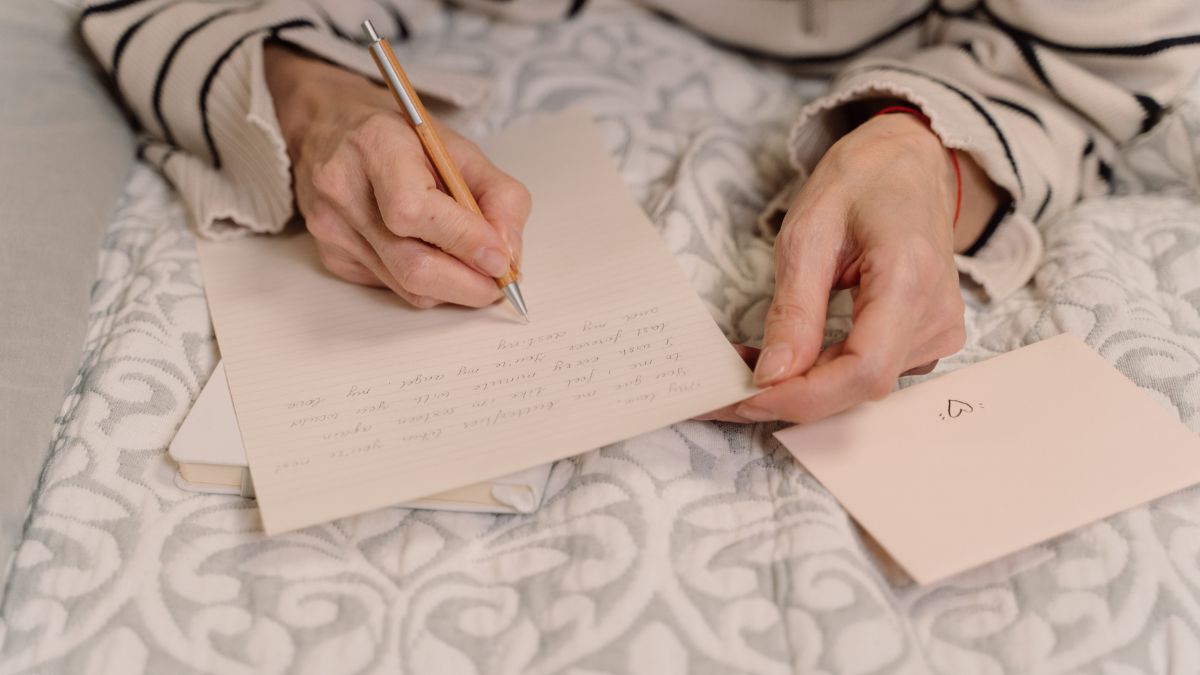 My love,
You give me butterflies when you're next
to me, i feel like i'm sixteen again
I wish every minute with you would
last forever. You're my angel, my love
and my destiny